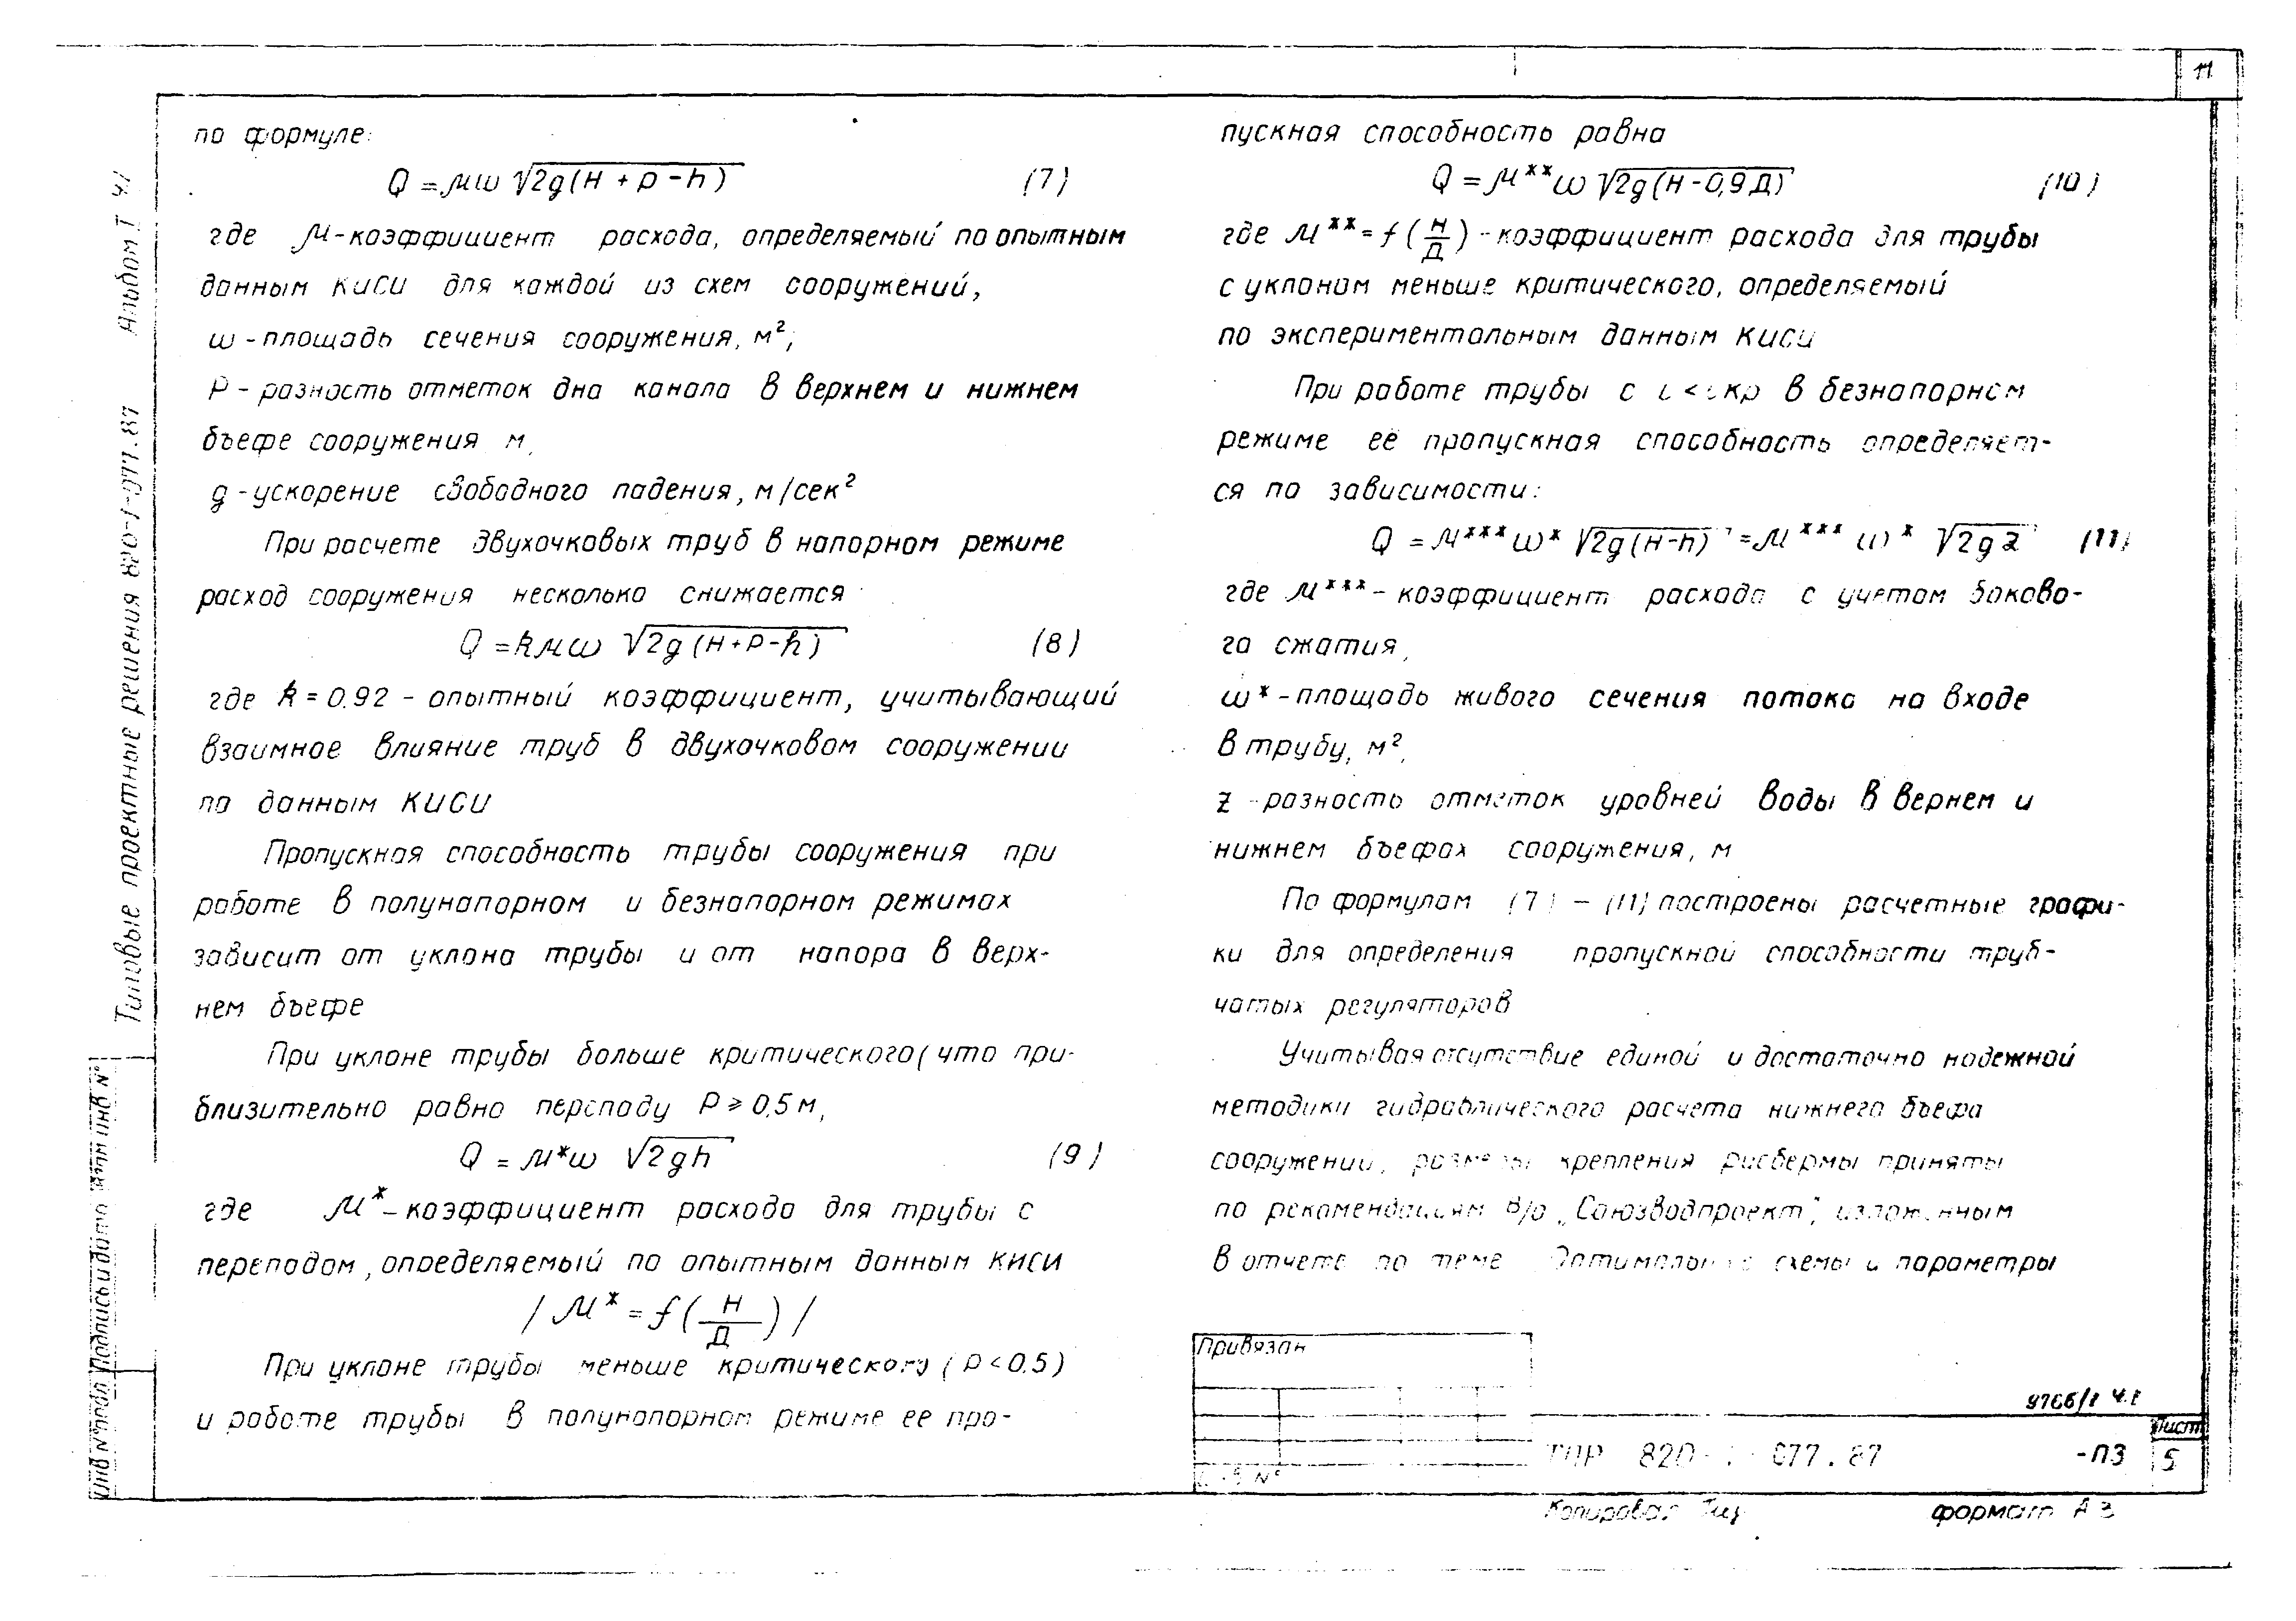 11
по формуле:
Q = μω √2g(H + p − h) (7)
где μ - коэффициент расхода, определяемый по опытным
данным КИСИ для каждой из схем сооружений,
ω - площадь сечения сооружения, м²;
P - разность отметок дна канала в верхнем и нижнем
бъефе сооружения м,
g - ускорение свободного падения, м/сек²
При расчете двухочковых труб в напорном режиме
расход сооружения несколько снижается
Q = kμω √2g (H + P − h) (8)
где k = 0.92 - опытный коэффициент, учитывающий
взаимное влияние труб в двухочковом сооружении
по данным КИСИ
Пропускная способность трубы сооружения при
работе в полунапорном и безнапорном режимах
зависит от уклона трубы и от напора в верх-
нем бъефе
При уклоне трубы больше критического (что при-
близительно равно перепаду P ⩾ 0,5 м,
Q = μ*ω √2gh (9)
где μ* - коэффициент расхода для трубы с
перепадом, определяемый по опытным данным КИСИ
/ μ* = f (H/Д) /
При уклоне трубы меньше критического (P < 0.5)
и работе трубы в полунапорном режиме ее про-
пускная способность равна
Q = μ** ω √2g(H - 0,9Д) (10)
где μ** = f (H/Д) - коэффициент расхода для трубы
с уклоном меньше критического, определяемый
по экспериментальным данным КИСИ
При работе трубы с i < iкр в безнапорном
режиме её пропускная способность определяет-
ся по зависимости:
Q = μ*** ω* √2g(H-h) = μ*** ω* √2gz (11)
где μ*** - коэффициент расхода с учетом боково-
го сжатия,
ω* - площадь живого сечения потока на входе
в трубу, м²,
z - разность отметок уровней воды в вернем и
нижнем бъефах сооружения, м
По формулам (7) - (11) построены расчетные графи-
ки для определения пропускной способности труб-
чатых регуляторов
Учитывая отсутствие единой и достаточно надежной
методики гидравлического расчета нижнего бъефа
сооружений, размеры крепления рисбермы приняты
по рекомендациям В/о „Союзводпроект", изложенным
в отчете по теме Оптимальные схемы и параметры
Привязан
Инв N°
9766/1 ч.1
ТПР 820-1-077.87 -ПЗ
Лист
5
Копировал
формат А3
Типовые проектные решения 820-1-077.87 Альбом I ч.1
Инв N° подл Подпись и дата Взам инв N°